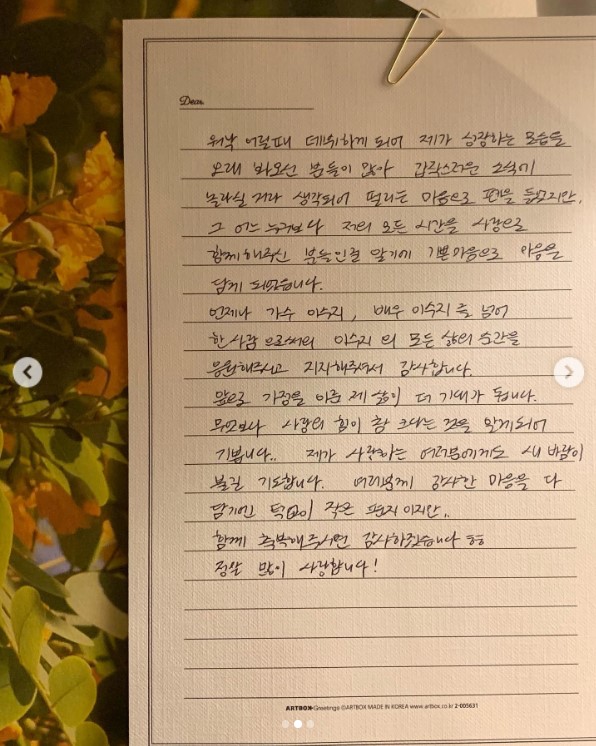 Dear.
워낙 어릴때 데뷔하게 되어 제가 성장하는 모습을
오래 봐오신 분들이 많아 갑작스러운 소식에
놀라실 거라 생각되어 떨리는 마음으로 펜을 들었지만,
그 어느 누구보다 저의 모든 시간을 사랑으로
함께해주신 분들인걸 알기에 기쁜마음으로 마음을
담게 되었습니다.
언제나 가수 이수지, 배우 이수지 를 넘어
한 사람 으로써의 이수지 의 모든 삶의 순간을
응원해주시고 지지해주셔서 감사합니다.
앞으로 가정을 이룰 제 삶이 더 기대가 됩니다.
무엇보다 사랑의 힘이 참 크다는 것을 알게되어
기쁩니다.. 제가 사랑하는 여러분에게도 새 바람이
불길 기도합니다. 여러분께 감사한 마음을 다
담기엔 턱없이 작은 편지 이지만..
함께 축복해주시면 감사하겠습니다 ㅎㅎ
정말 많이 사랑합니다!
ARTBOX Greetings ©ARTBOX MADE IN KOREA www.artbox.co.kr 2-005631